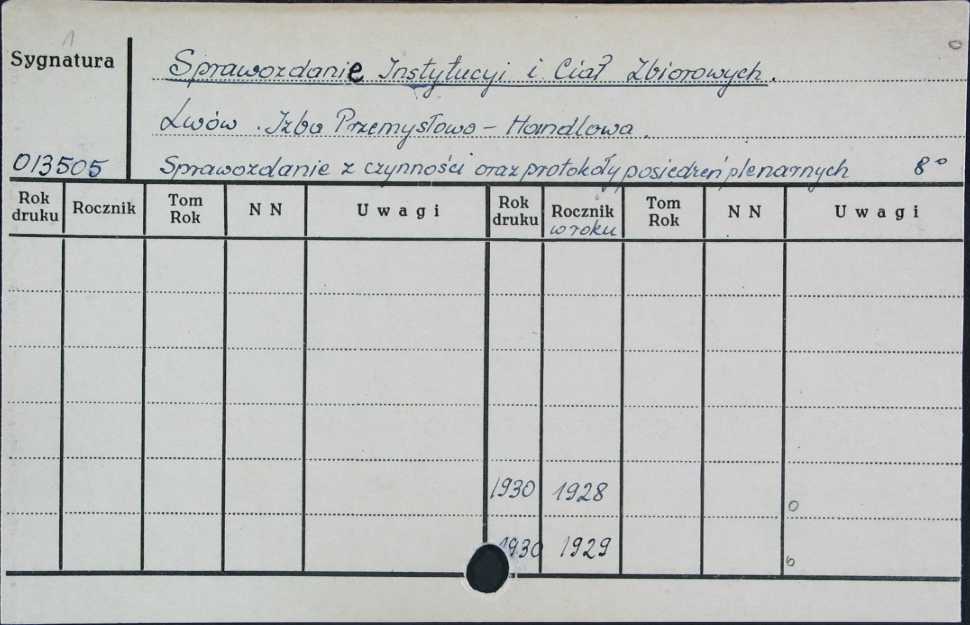 1
Sygnatura
Sprawozdanie Instytucyi i Ciał Zbiorowych.
0
Lwów. Izba Przemysłowo - Handlowa.
013505
Sprawozdanie z czynności oraz protokoły posiedzeń plenarnych 8°
Rok druku Rocznik Tom Rok N N Uwagi Rok druku Rocznik w roku Tom Rok N N Uwagi
1930 1928 0
1930 1929 0